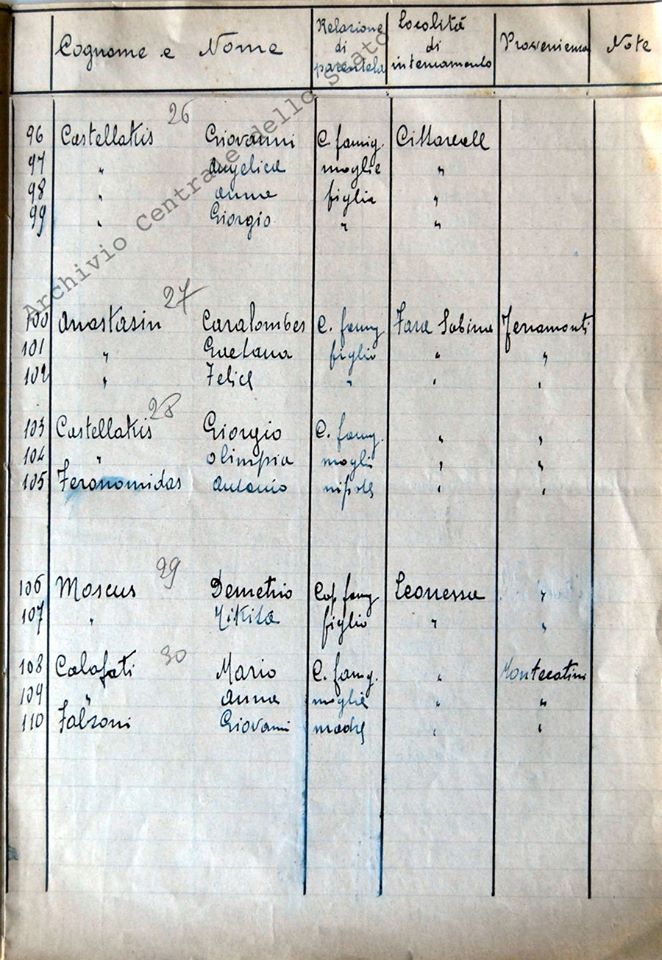 Cognome e Nome Relazione di parentela Località di internamento Provenienza Note
Archivio Centrale dello Stato
26
96 Castellakis Giovanni C. famig. Cittareale
97 " Angelica moglie "
98 " Anna figlia "
99 " Giorgio " "
27
100 Anastasin C. famig. Fara Sabina Ferramonti
101 " Gaetana figlio " "
102 " Felice " " "
28
103 Castellakis Giorgio C. famig. " "
104 " Olimpia moglie " "
105 Feronomidas Antonio nipote " "
29
106 Moscus Demetrio Cap famig Leonessa "
107 " Nikita figlio " "
30
108 Calafati Mario C. famig. " Montecatini
109 " Anna moglie " "
110 Falzoni Giovanni madre " "